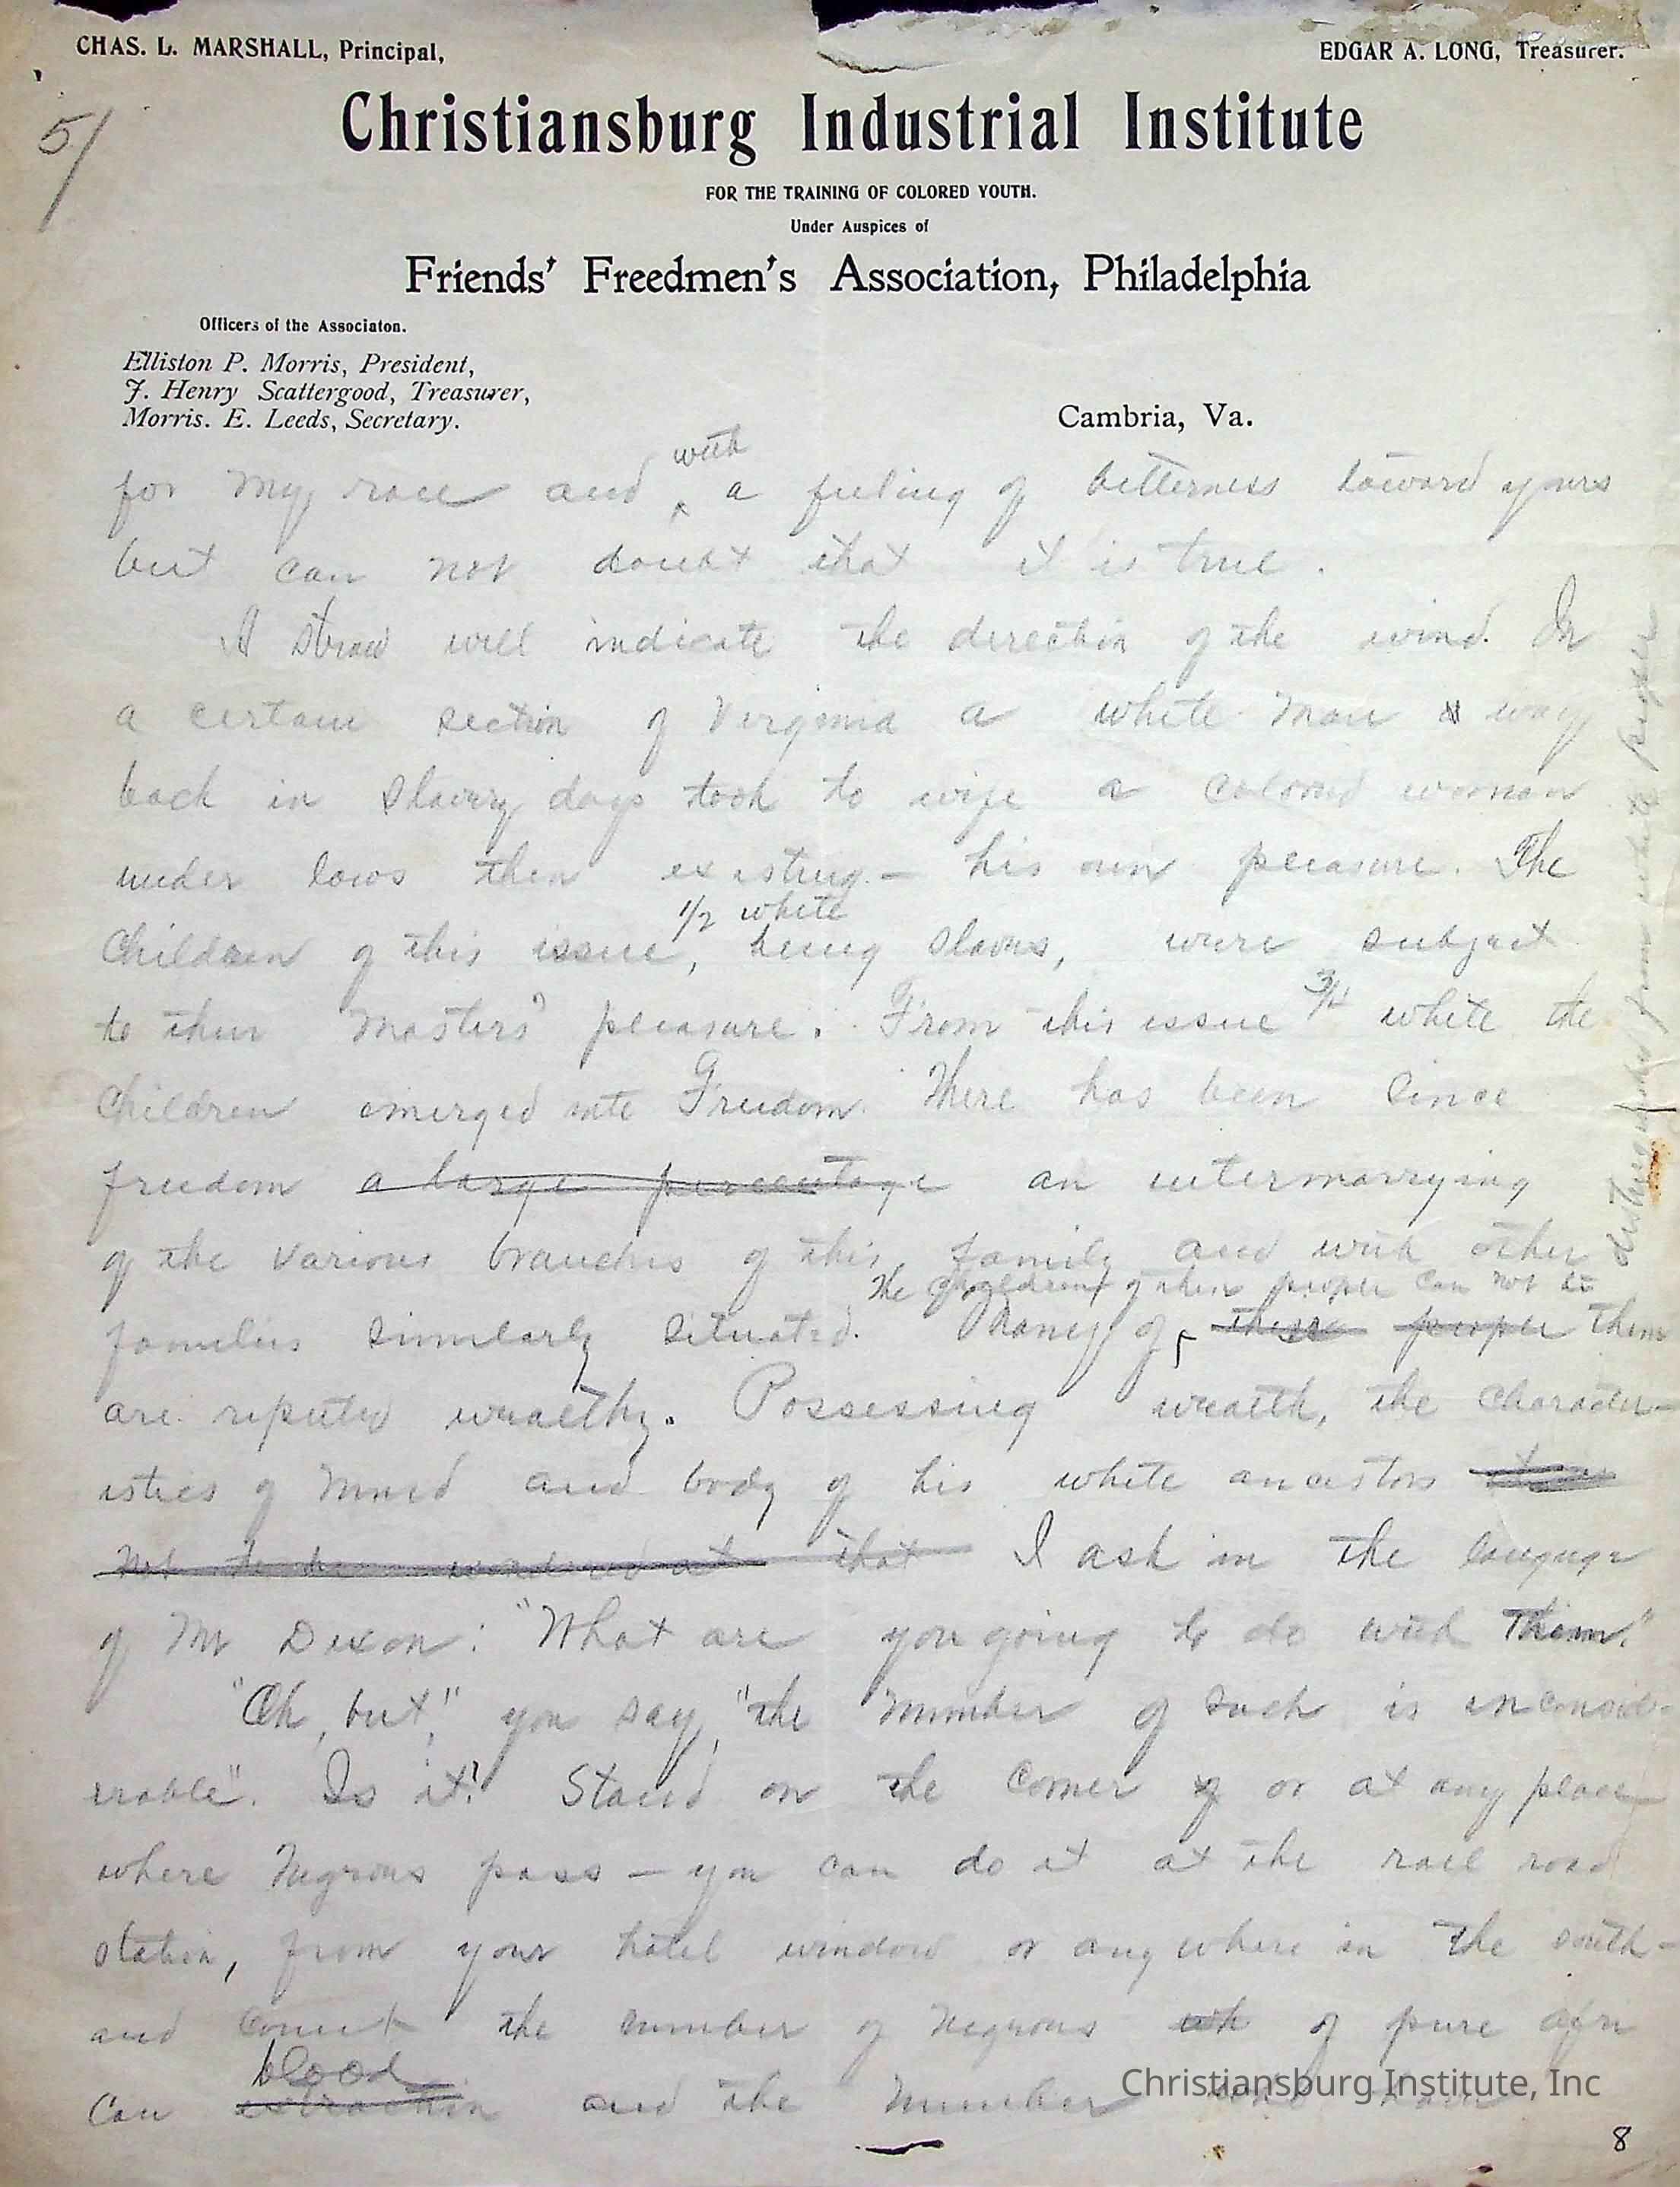 CHAS. L. MARSHALL, Principal,
EDGAR A. LONG, Treasurer.
5/
Christiansburg Industrial Institute
FOR THE TRAINING OF COLORED YOUTH.
Under Auspices of
Friends' Freedmen's Association, Philadelphia
Officers of the Associaton.
Elliston P. Morris, President,
J. Henry Scattergood, Treasurer,
Morris. E. Leeds, Secretary.
Cambria, Va.
with
for my race and ‸ a feeling of bitterness toward yours
but can not doubt that it is true.
A straw will indicate the direction of the wind. In
a certain section of Virginia a white man way
back in slavery days took to wife a colored woman
under laws then existing — his own pleasure. The
1/2 white
Children of this issue, being slaves, were subject
to their masters' pleasure. From this issue 3/4 white the
Children emerged into Freedom. There has been since
freedom a large percentage an intermarrying
of the various branches of this family and with other
The children of these people can not be
distinguished from white people
families similarly situated. Many of these people them
are reputed wealthy. Possessing wealth, the character-
istics of mind and body of his white ancestors
not to be wondered at that I ask in the language
of Mr Dixon: "What are you going to do with them."
"Oh, but," you say, "the number of such is inconsid-
erable". Is it? Stand on the corner of or at any place
where Negroes pass — you can do it at the rail road
station, from your hotel window or any where in the south -
and count the number of Negroes of pure afri
blood
can extraction and the number who have
Christiansburg Institute, Inc
8